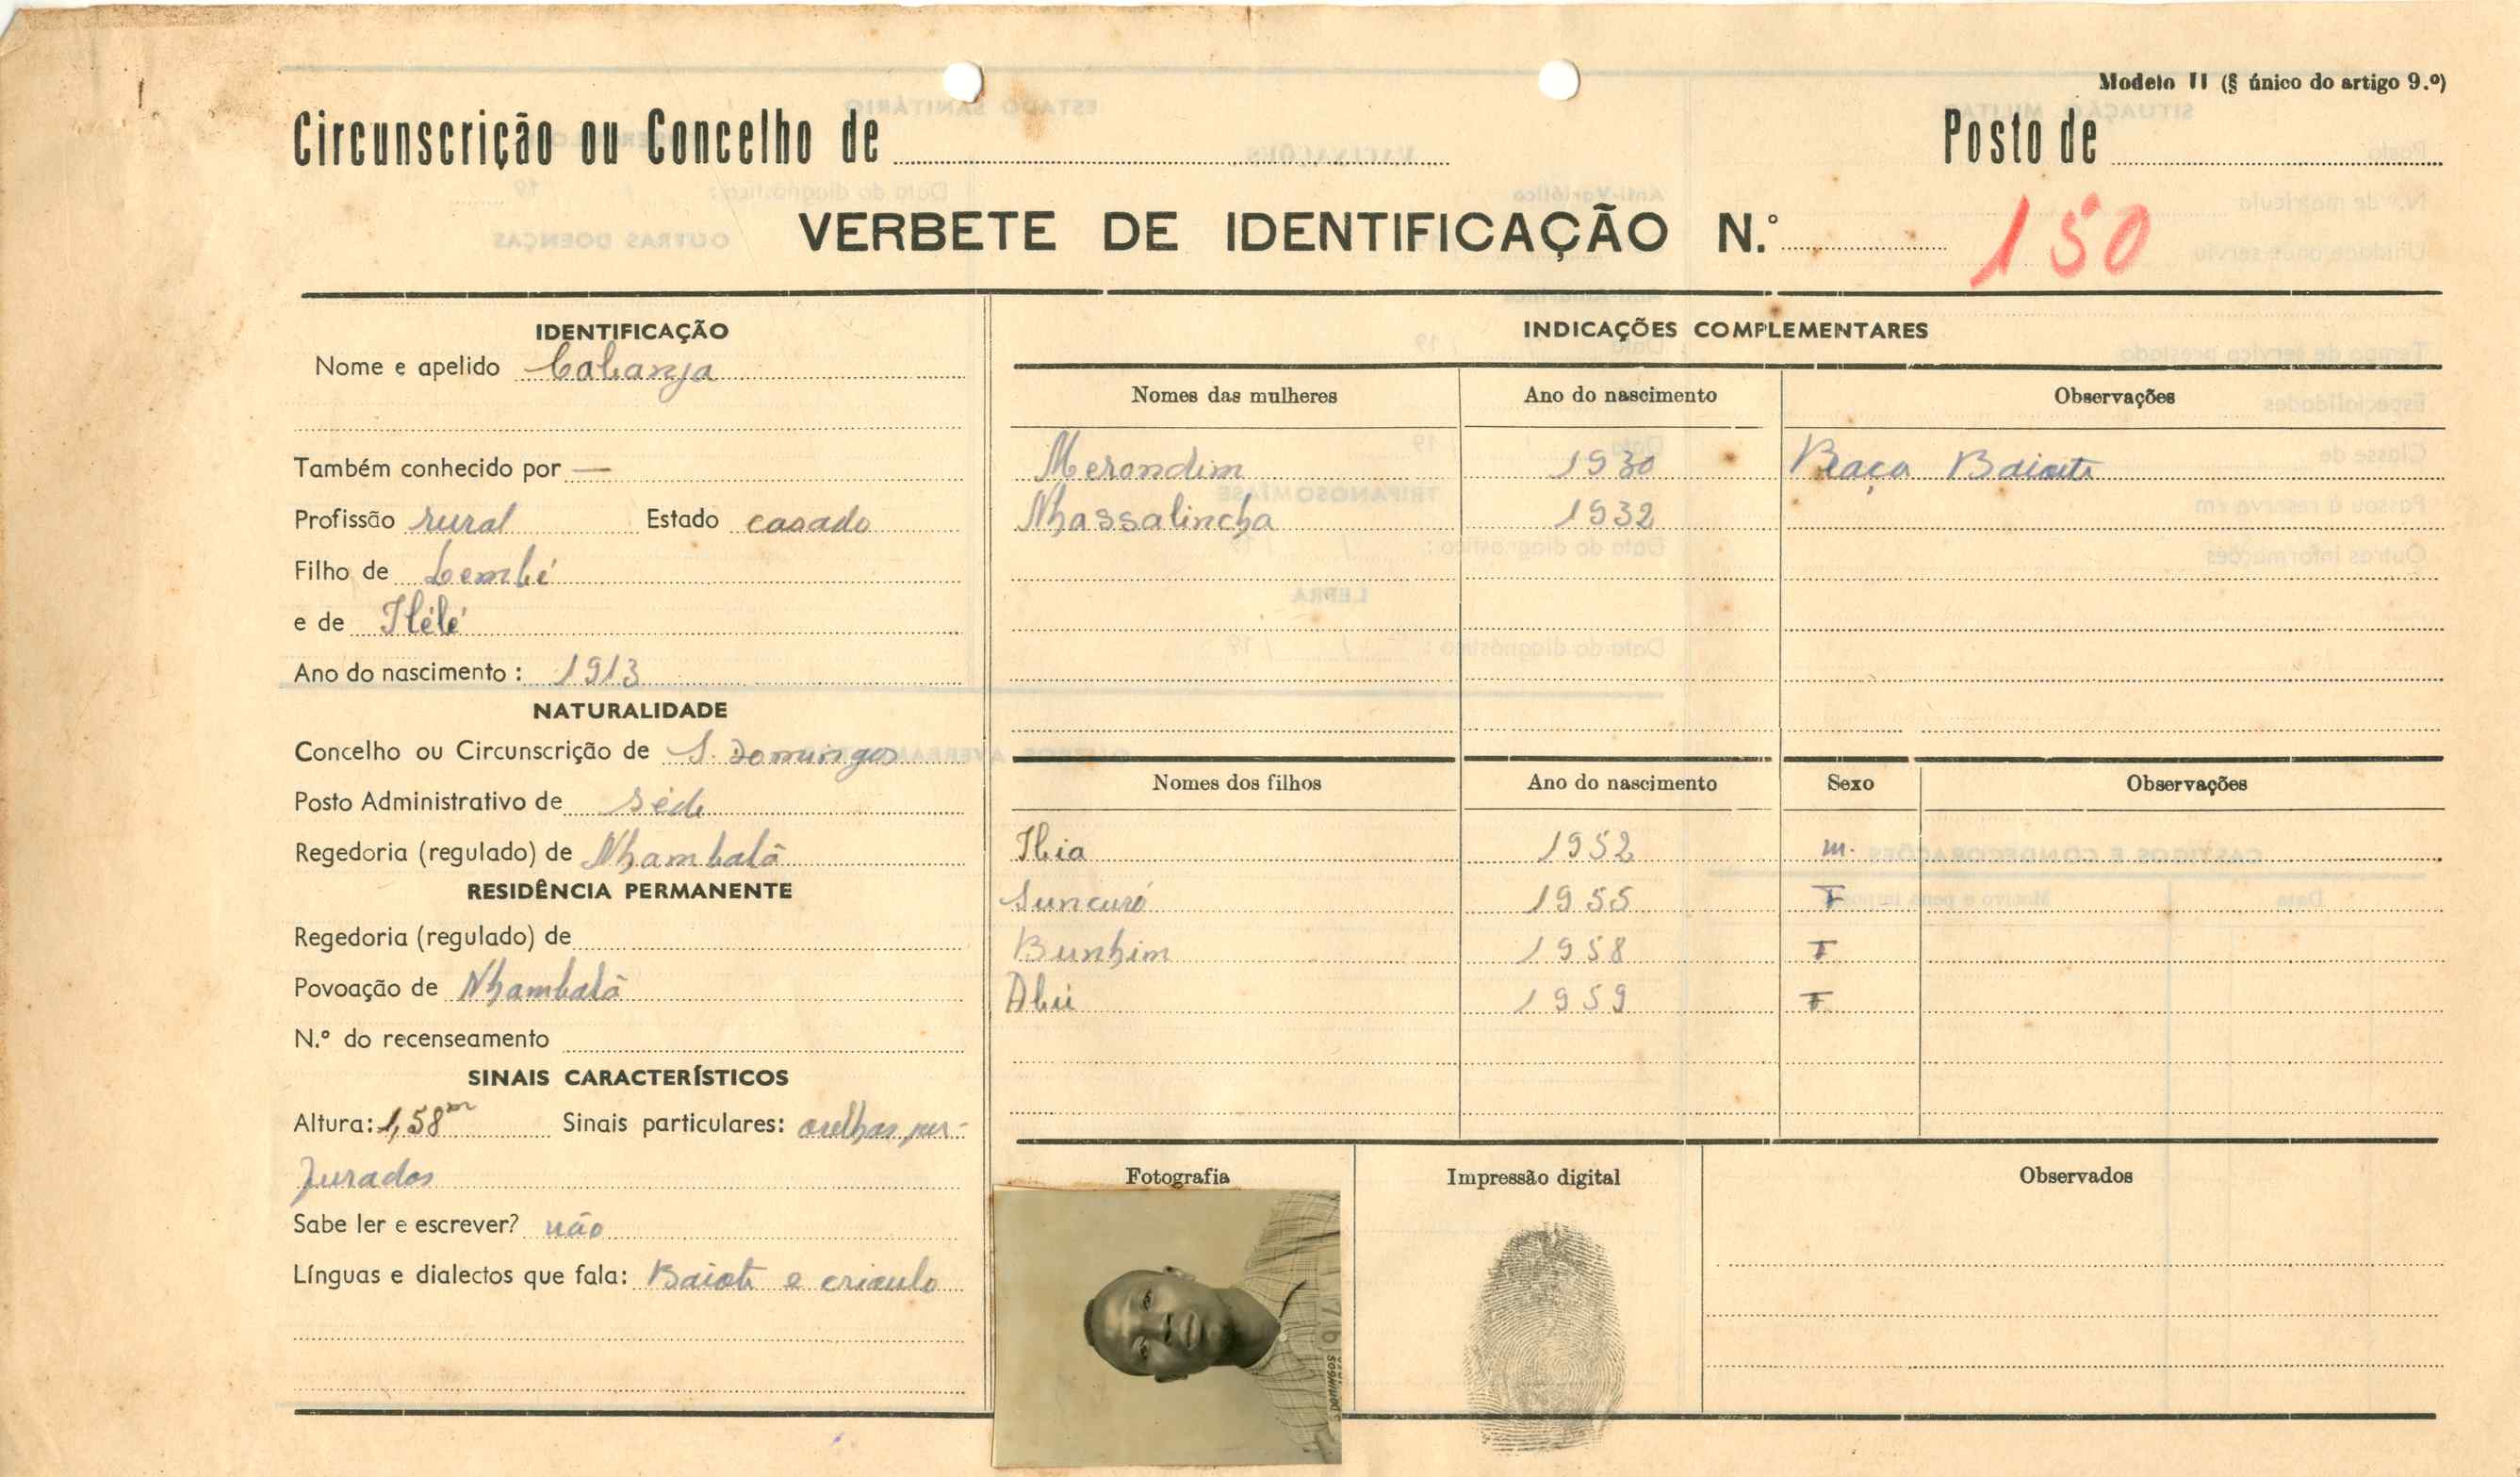 Modelo II (§ único do artigo 9.º)
Circunscrição ou Concelho de
Posto de
VERBETE DE IDENTIFICAÇÃO N.º 150
IDENTIFICAÇÃO
Nome e apelido Cabanja
Também conhecido por —
Profissão rural Estado casado
Filho de Lembé
e de
Ano do nascimento : 1913
NATURALIDADE
Concelho ou Circunscrição de S. Domingos
Posto Administrativo de séde
Regedoria (regulado) de Nhambalã
RESIDÊNCIA PERMANENTE
Regedoria (regulado) de
Povoação de Nhambalã
N.º do recenseamento
SINAIS CARACTERÍSTICOS
Altura: 1,58m Sinais particulares: orelhas per-
furados
Sabe ler e escrever? não
Línguas e dialectos que fala: Baiote e crioulo
INDICAÇÕES COMPLEMENTARES
Nomes das mulheres Ano do nascimento Observações
Merondim 1930 Raça Baiote
Nhassalincha 1932
Nomes dos filhos Ano do nascimento Sexo Observações
1952 m.
Suncuró 1955 F
Bunhim 1958 F
Abú 1959 F
Fotografia
Impressão digital
Observados